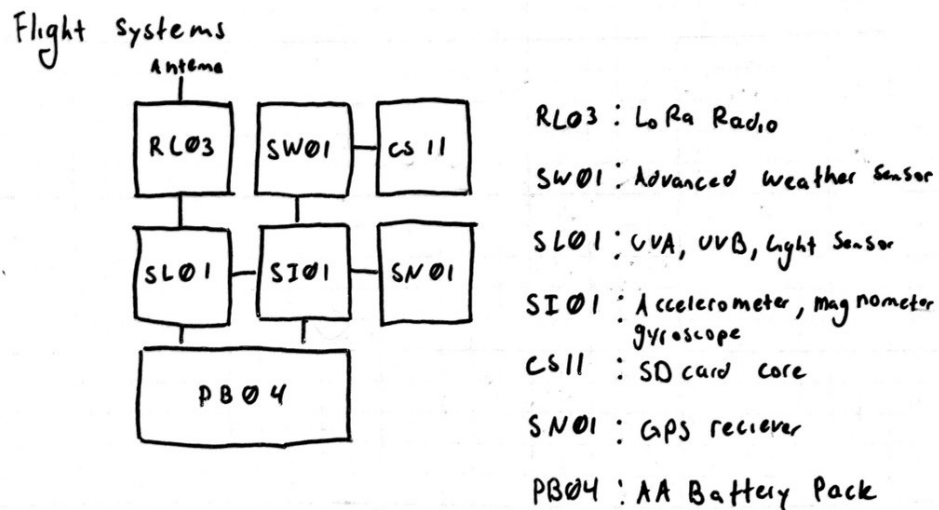 Flight Systems
Antema
RLØ3 SWØ1 CS11
SLØ1 SIØ1 SNØ1
PBØ4
RLØ3 : LoRa Radio
SWØ1 : Advanced Weather Sensor
SLØ1 : UVA, UVB, Light Sensor
SIØ1 : Accelerometer, Magnometer
gyroscope
CS11 : SD card core
SNØ1 : GPS reciever
PBØ4 : AA Battery Pack